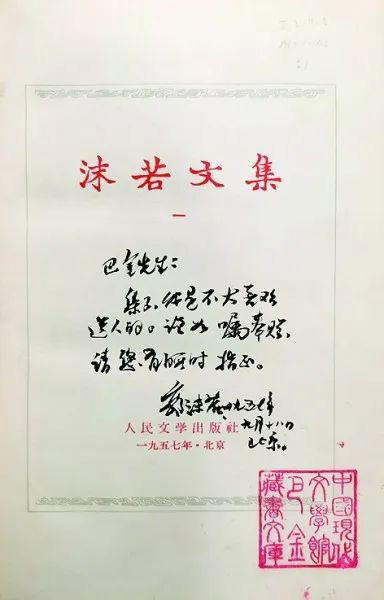 沫若文集
一
巴金先生：
集子，我是不大喜欢
送人的。谨如嘱奉赠，
请您有暇时指正。
郭沫若 一九五七年
九月十八日
北京。
人民文学出版社
一九五七年·北京
中国现代
文学馆
巴金
藏书文库